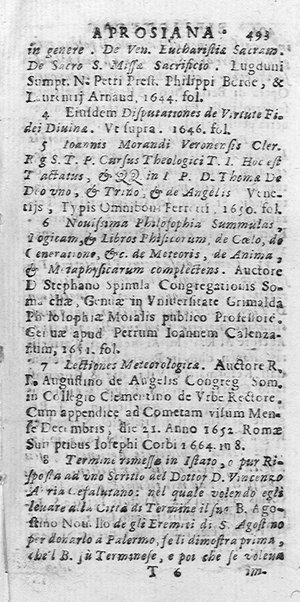 APROSIANA. 493
in genere. De Ven. Eucharistia Sacram.
De Sacro S. Missa Sacrificio. Lugduni
Sumpt. N. Petri Prost. Philippi Borde, &
Laurentij Arnaud, 1644. fol.
4 Eiusdem Disputationes de Virtute Fi-
dei Diuina. Vt supra. 1646. fol.
5 Ioannis Morandi Veronensis Cler.
R g S. T. P. Cursus Theologici T. I. Hoc est
Tractatus, & QQ. in I P. D. Thomæ De
Deo vno, & Trino, & de Angelis Vene-
tijs, Typis Omniboni Ferretti, 1650. fol.
6 Nouissima Philosophia Summulas,
Logicam, & Libros Phisicorum, de Cœlo, de
Generatione, &c. de Meteoris, de Anima,
& Metaphysicarum complectens. Auctore
D Stephano Spinula Congregationis Soma-
chæ, Genuæ in Vniuersitate Grimalda
Philosophiæ Moralis publico Professore.
Genuæ apud Petrum Ioannem Calenza-
num, 1651. fol.
7 Lectiones Meteorologica. Auctore R.
P. Augustino de Angelis Congreg Som.
in Collegio Clementino de Vrbe Rectore.
Cum appendice ad Cometam visum Men-
se Decembris, die 21. Anno 1652 Romæ
Sumptibus Iosephi Corbi 1664. in 8.
8 Termine rimesso in Istato, o pur Ri-
sposta ad vno Scritto del Dottor D. Vincenzo
Auria Cefalutano: nel quale volendo egli
leuare alla Città di Termine il suo B. Ago-
stino Nouello de gli Eremiti di S. Agostino
per donarlo a Palermo, se li dimostra prima,
che'l B. fù Terminese, e poi che se voleua
T 6 im-